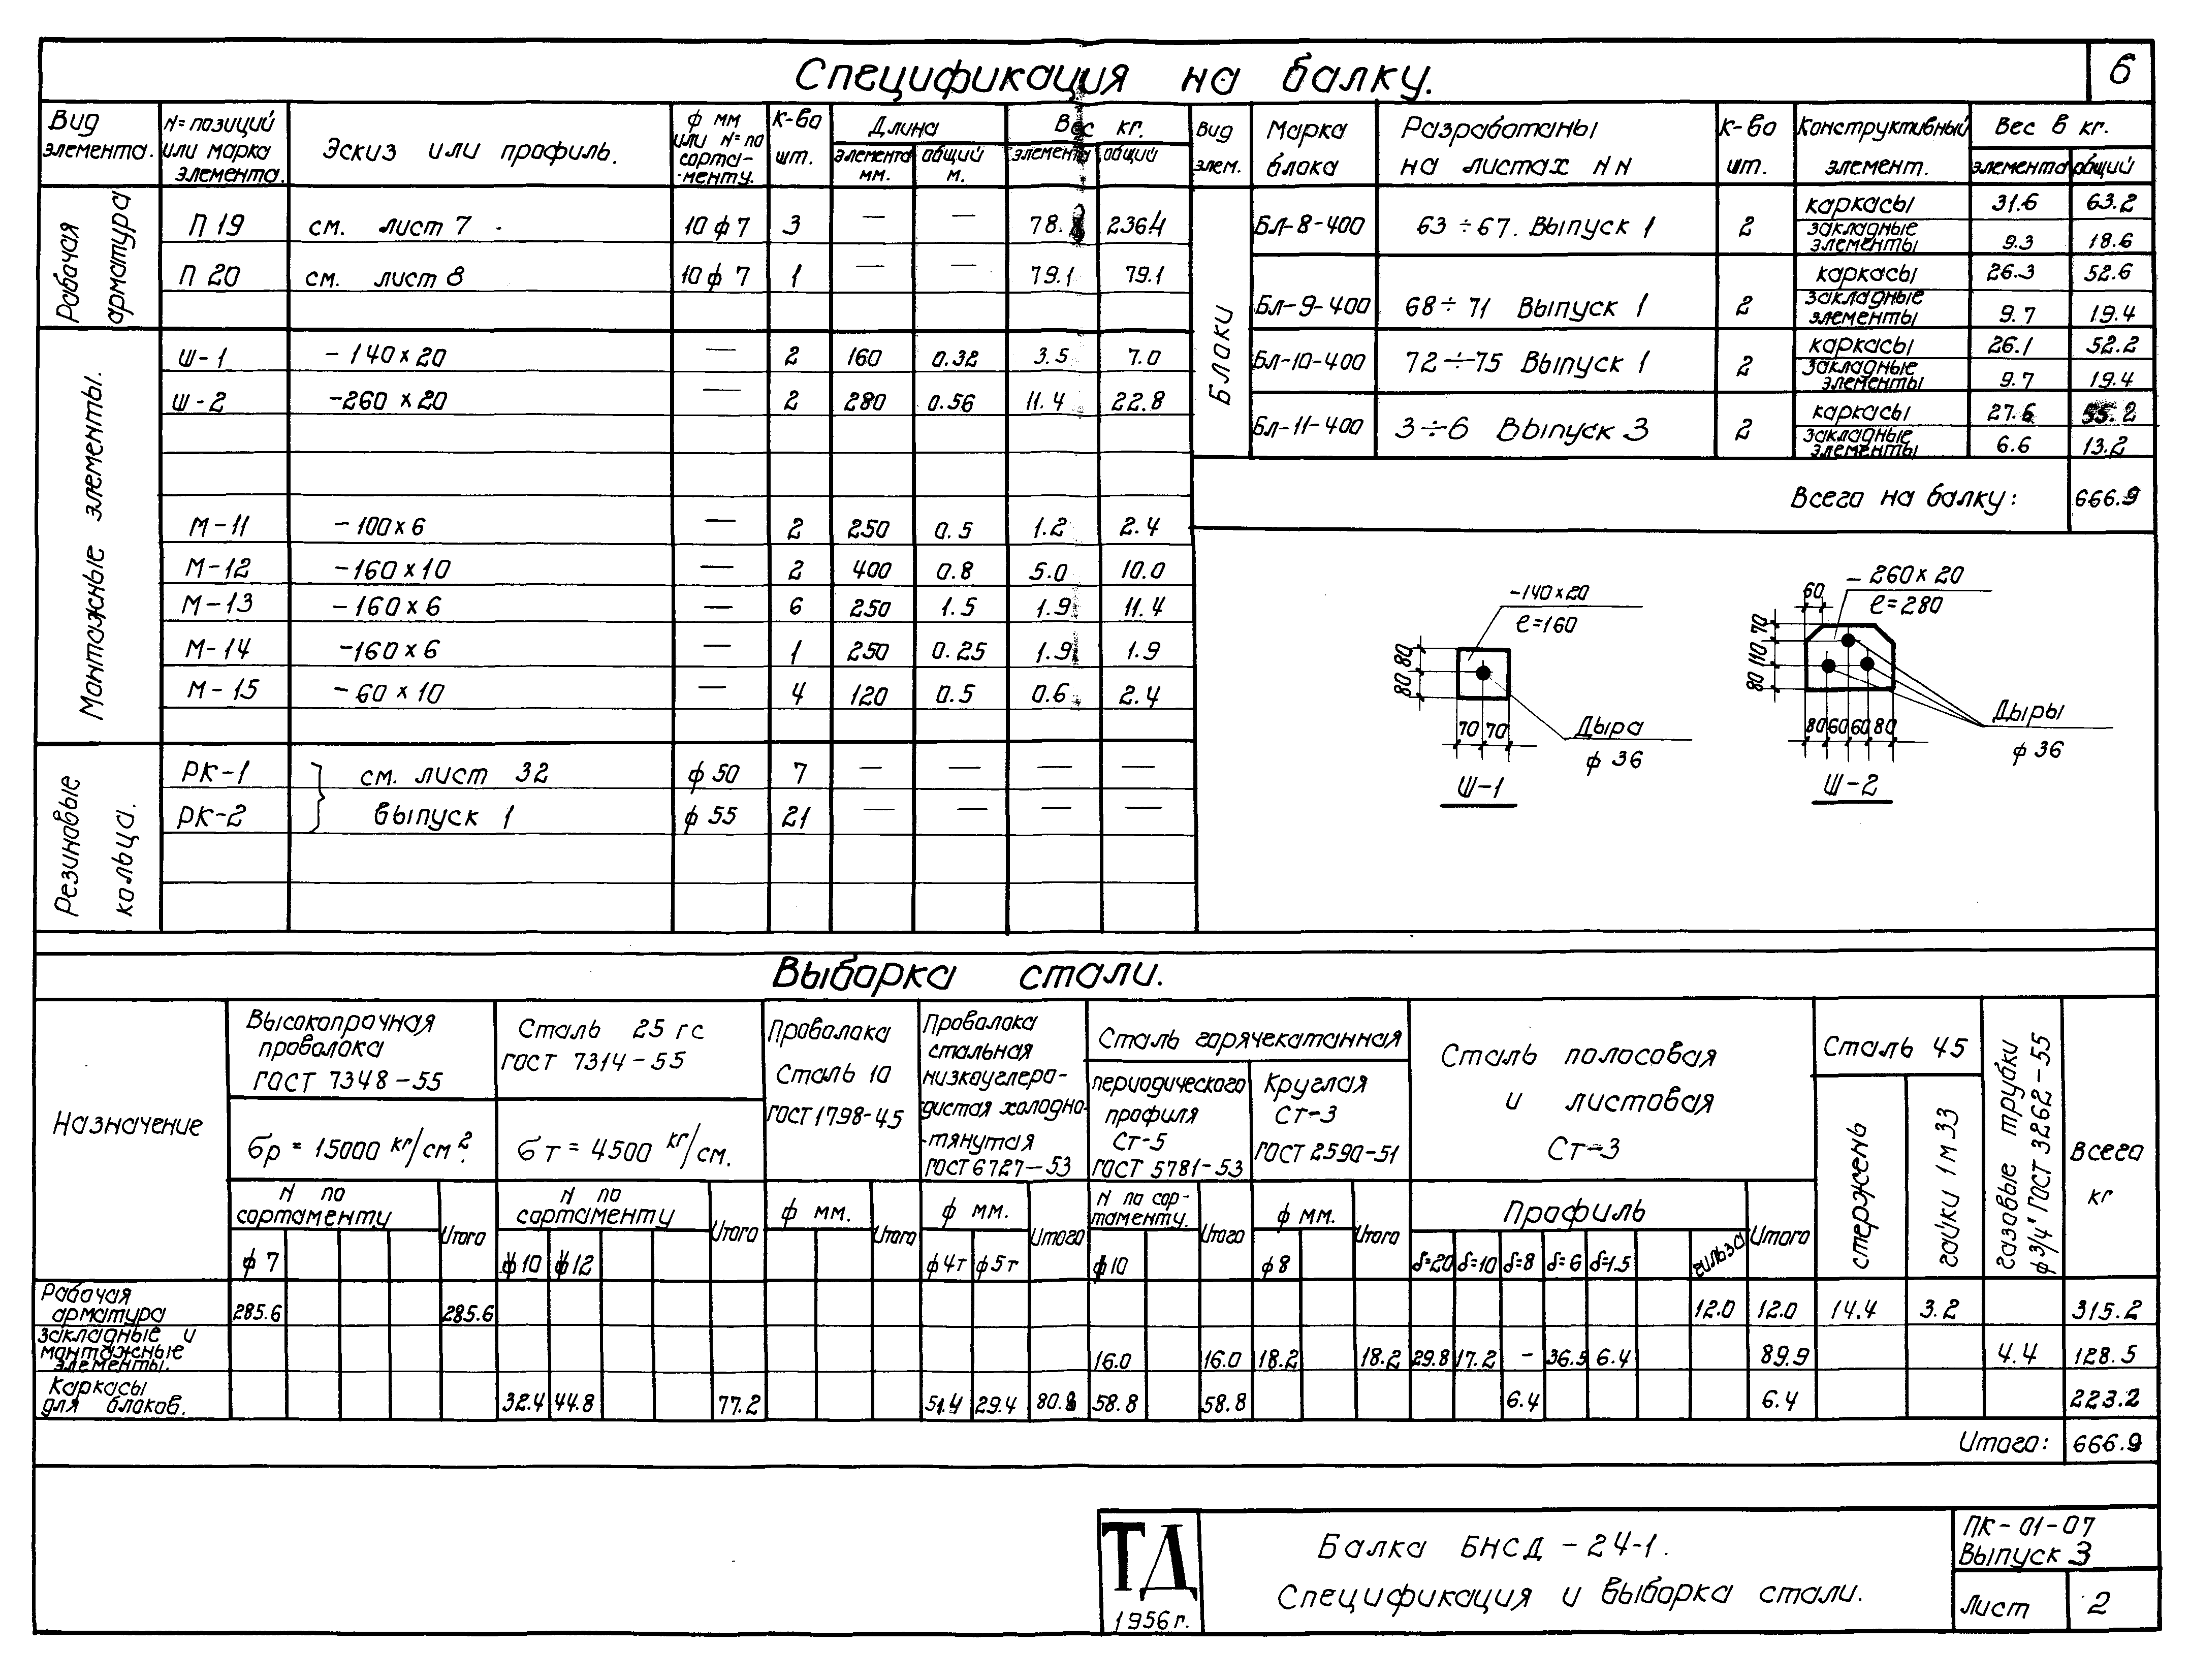 6
Спецификация на балку.
Вид элемента.
N= позиций или марка элемента.
Эскиз или профиль.
ф мм или N= по сорта--менту.
К-во шт.
Длина
элемента мм.
общий м.
Вес кг.
элемента
общий
Рабочая арматура
П 19 см. лист 7 10 ф 7 3 — — 236.4
П 20 см. лист 8 10 ф 7 1 — — 79.1 79.1
Монтажные элементы.
Ш-1 - 140 х 20 — 2 160 0.32 3.5 7.0
Ш-2 -260 х 20 — 2 280 0.56 11.4 22.8
М-11 - 100 х 6 — 2 250 0.5 1.2 2.4
М-12 -160 х 10 — 2 400 0.8 5.0 10.0
М-13 -160 х 6 — 6 250 1.5 1.9 11.4
М-14 -160 х 6 — 1 250 0.25 1.9 1.9
М-15 - 60 х 10 — 4 120 0.5 0.6 2.4
Резиновые кольца.
РК-1 см. лист 32 ф 50 7 — — — —
РК-2 выпуск 1 ф 55 21 — — — —
Вид элем.
Марка блока
Разработаны на листах NN
К-во шт.
Конструктивный элемент.
Вес в кг.
элемента
общий
Блоки
Бл-8-400 63÷67. Выпуск 1 2
каркасы 31.6 63.2
закладные элементы 9.3 18.6
Бл-9-400 68÷71 Выпуск 1 2
каркасы 26.3 52.6
закладные элементы 9.7 19.4
Бл-10-400 72÷75 Выпуск 1 2
каркасы 26.1 52.2
закладные элементы 9.7 19.4
Бл-11-400 3÷6 Выпуск 3 2
каркасы 27.6 55.2
закладные элементы 6.6 13.2
Всего на балку: 666.9
-140х20
ℓ=160
80 80
70 70
Дыра
ф 36
Ш-1
- 260х 20
ℓ=280
60
80 110 70
80 60 60 80
Дыры
ф 36
Ш-2
Выборка стали.
Назначение
Высокопрочная
проволока
ГОСТ 7348-55
бр = 15000 кг/см².
N по
сортаменту
Итого
ф 7
Сталь 25 гс
ГОСТ 7314-55
б т = 4500 кг/см.
N по
сортаменту
Итого
ф10 ф12
Проволока
Сталь 10
ГОСТ 1798-45
ф мм.
Итого
Проволока
стальная
низкоуглеро-
дистая холодно-
-тянутая
ГОСТ 6727-53
ф мм.
Итого
ф4т ф5т
Сталь горячекатанная
периодического
профиля
Ст-5
ГОСТ 5781-53
N по сор-
таменту.
Итого
ф10
Круглая
Ст-3
ГОСТ 2590-51
ф мм.
Итого
ф8
Сталь полосовая
и листовая
Ст-3
Профиль
Итого
δ=20 δ=10 δ=8 δ=6 δ=1.5 гильза
Сталь 45
стержень
гайки 1М33
газовые трубки
ф 3/4" ГОСТ 3262-55
Всего
кг
Рабочая
арматура 285.6 285.6 12.0 12.0 14.4 3.2 315.2
закладные и
монтажные
элементы. 16.0 16.0 18.2 18.2 29.8 17.2 - 36.5 6.4 89.9 4.4 128.5
Каркасы
для блоков. 32.4 44.8 77.2 51.4 29.4 80.8 58.8 58.8 6.4 6.4 223.2
Итого: 666.9
ТД
1956 г.
Балка БНСД - 24-1.
Спецификация и выборка стали.
ПК-01-07
Выпуск 3
Лист 2